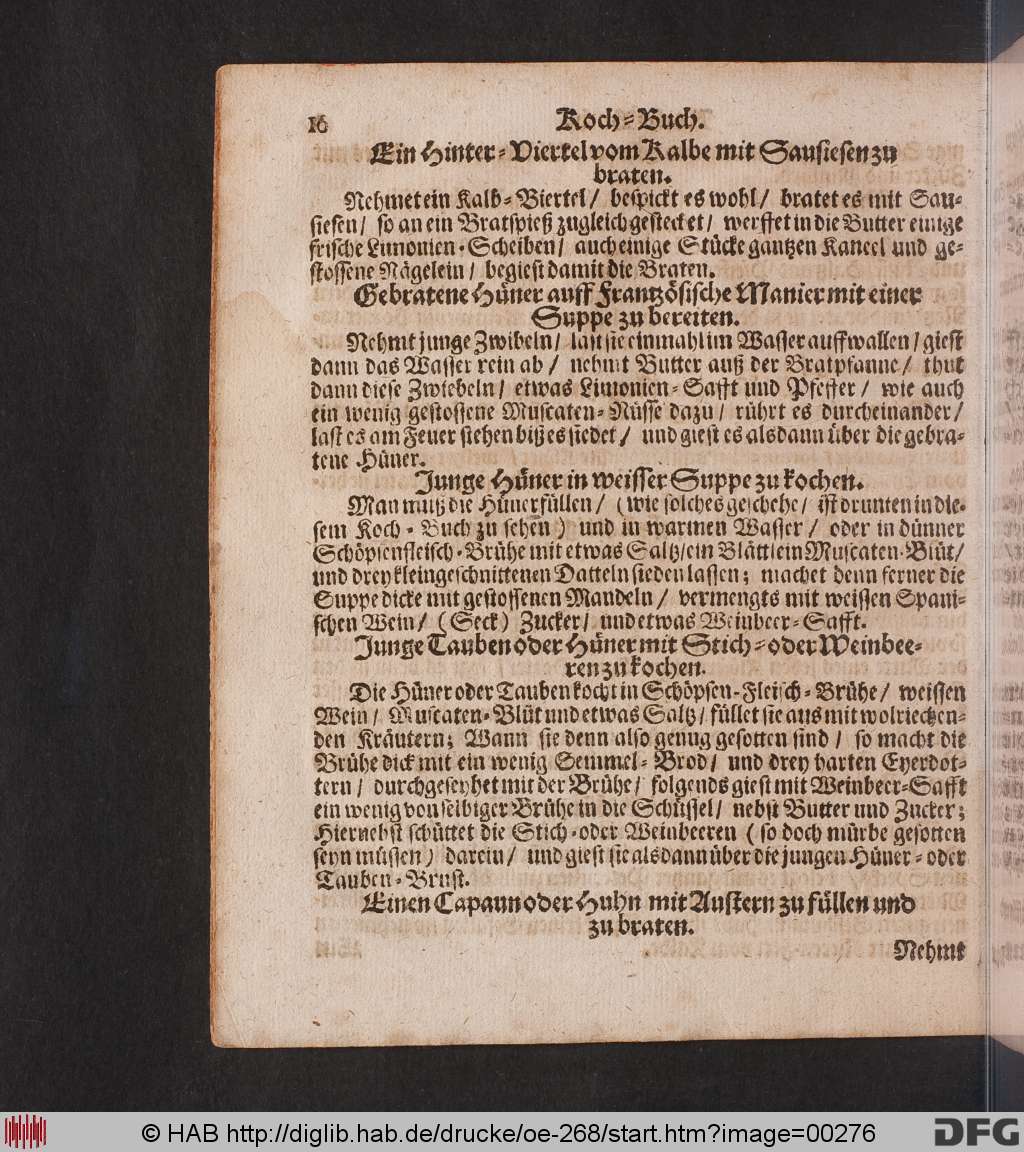 16 Koch-Buch.
Ein Hinter-Viertel vom Kalbe mit Sausiesen zu
braten.
Nehmet ein Kalb-Viertel/ bespickt es wohl/ bratet es mit Sau-
siesen/ so an ein Bratspieß zugleich gestecket/ werffet in die Butter einige
frische Limonien-Scheiben/ auch einige Stücke gantzen Kaneel und ge-
stossene Nägelein/ begiest damit die Braten.
Gebratene Hüner auff Frantzösische Manier mit einer
Suppe zu bereiten.
Nehmt junge Zwibeln/ last sie einmahl im Wasser auffwallen/ giest
dann das Wasser rein ab/ nehmt Butter auß der Bratpfanne/ thut
dann diese Zwiebeln/ etwas Limonien-Safft und Pfeffer/ wie auch
ein wenig gestossene Muscaten-Nüsse dazu/ rührt es durcheinander/
last es am Feuer stehen biß es siedet/ und giest es alsdann über die gebra-
tene Hüner.
Junge Hüner in weisser Suppe zu kochen.
Man muß die Hüner füllen/ (wie solches geschehe/ ist drunten in die-
sem Koch-Buch zu sehen) und in warmen Wasser/ oder in dünner
Schöpsenfleisch-Brühe mit etwas Saltz/ ein Blättlein Muscaten-Blüt/
und drey kleingeschnittenen Datteln sieden lassen; machet denn ferner die
Suppe dicke mit gestossenen Mandeln/ vermengts mit weissen Spani-
schen Wein/ (Seck) Zucker/ und etwas Weinbeer-Safft.
Junge Tauben oder Hüner mit Stich- oder Weinbee-
ren zu kochen.
Die Hüner oder Tauben kocht in Schöpsen-Fleisch-Brühe/ weissen
Wein/ Muscaten-Blüt und etwas Saltz/ füllet sie aus mit wolriechen-
den Kräutern; Wann sie denn also genug gesotten sind/ so macht die
Brühe dick mit ein wenig Semmel-Brod/ und drey harten Eyerdot-
tern/ durchgeseyhet mit der Brühe/ folgends giest mit Weinbeer-Safft
ein wenig von selbiger Brühe in die Schüssel/ nebst Butter und Zucker;
Hiernebst schüttet die Stich- oder Weinbeeren (so doch mürbe gesotten
seyn müsten) darein/ und giest sie alsdann über die jungen Hüner- oder
Tauben-Brust.
Einen Capaun oder Huhn mit Austern zu füllen und
zu braten.
Nehmt
© HAB http://diglib.hab.de/drucke/oe-268/start.htm?image=00276
DFG